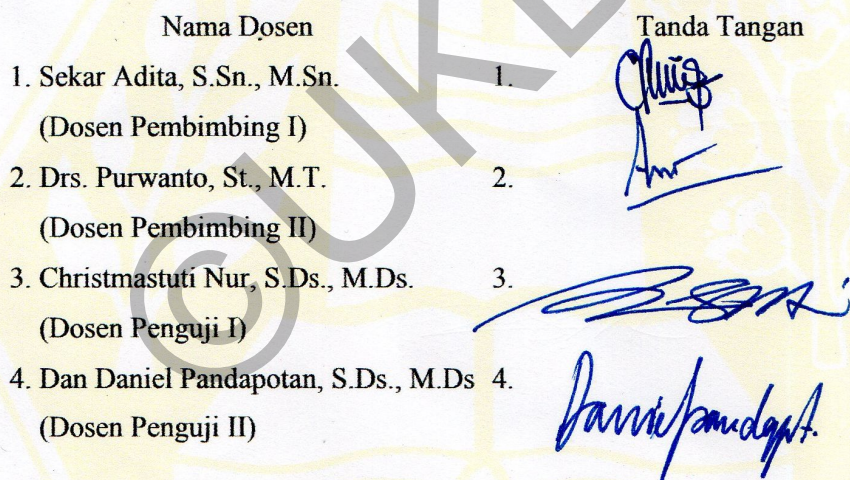 Nama Dosen Tanda Tangan
1. Sekar Adita, S.Sn., M.Sn. 1.
(Dosen Pembimbing I)
2. Drs. Purwanto, St., M.T. 2.
(Dosen Pembimbing II)
3. Christmastuti Nur, S.Ds., M.Ds. 3.
(Dosen Penguji I)
4. Dan Daniel Pandapotan, S.Ds., M.Ds 4.
(Dosen Penguji II)